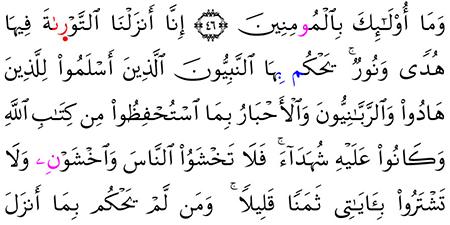 وَمَا أُو۟لَـٰٓئِكَ بِٱلْمُومِنِينَ ﴿٤٦﴾ إِنَّا أَنزَلْنَا ٱلتَّوْرَىٰةَ فِيهَا
هُدًى وَنُورٌ ۚ يَحْكُم بِهَا ٱلنَّبِيُّونَ ٱلَّذِينَ أَسْلَمُوا۟ لِلَّذِينَ
هَادُوا۟ وَٱلرَّبَّـٰنِيُّونَ وَٱلْأَحْبَارُ بِمَا ٱسْتُحْفِظُوا۟ مِن كِتَـٰبِ ٱللَّهِ
وَكَانُوا۟ عَلَيْهِ شُهَدَآءَ ۚ فَلَا تَخْشَوُا۟ ٱلنَّاسَ وَٱخْشَوْنِۦ وَلَا
تَشْتَرُوا۟ بِـَٔايَـٰتِى ثَمَنًا قَلِيلًا ۚ وَمَن لَّمْ يَحْكُم بِمَا أَنزَلَ